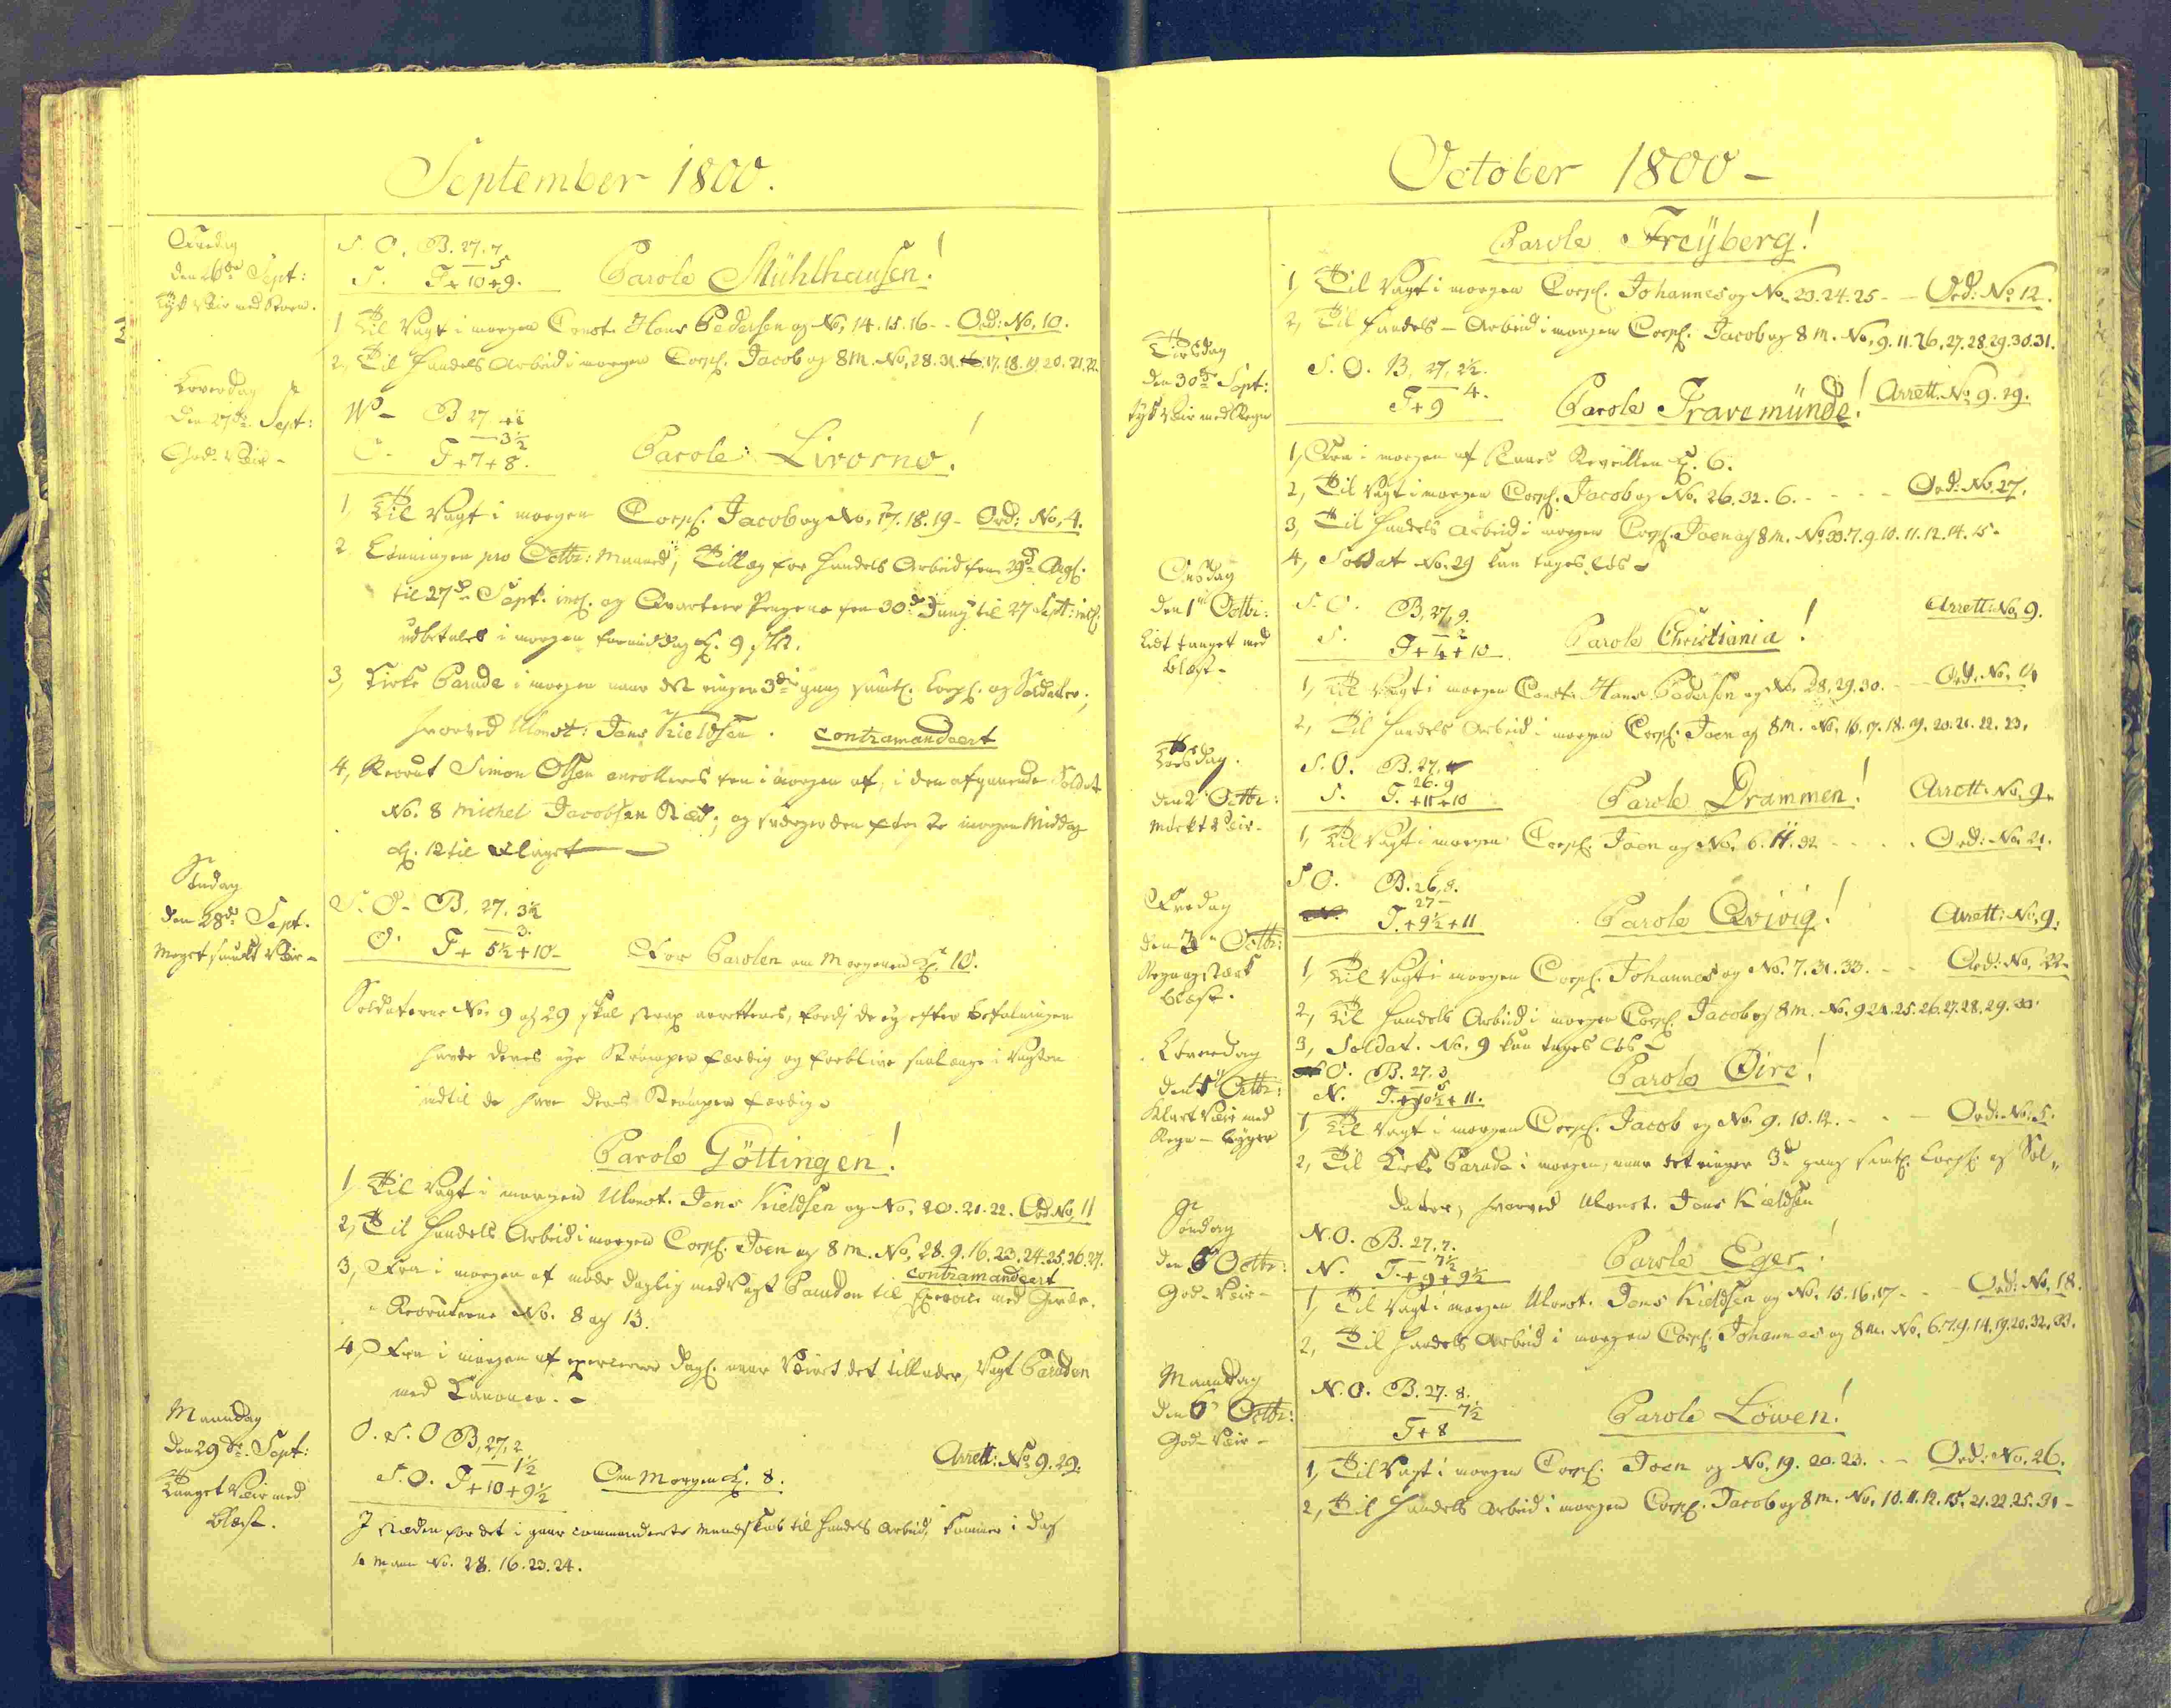 September 1800.
Fredag
den 26de Sept:
tykt Veir med Storm.
S. O. B. 27. 7
— 5
S. T + 10 + 9.
Parole Mühlhausen!
1, Til Vagt i morgen Const. Hans Pedersen og No, 14. 15. 16 - - Ord: No. 10.
2, Til Handels Arbeid i morgen Corpl. Jacob og 8 M. No, 28. 31. 17. 18. 19 20. 21. 22.
Løverdag
den 27de Sept:
God Veir -
B 27
— 3½
O. T + 7 + 8.
Parole: Livorno!
1, Til Vagt i morgen Corpl. Jacob og No, 17. 18. 19 - Ord: No, 4.
2. Lønningen pro Octbr: Maaned, Tillæg for Handels Arbeid fra 29de Aug:
til 27de Sept: incl. og Qvarteer Pengene fra 30de Juny til 27 Sept: incl.
udbetales i morgen formiddag Kl. 9 slet.
3, Kirke Parade i morgen naar det ringer 3die gang samtl. Corpl. og Soldater,
hvorved Ulonst: Jens Kieldsen. contramandeert
4, Recrut Simon Olsen enrolleres fra i morgen af, i den afgaaende Soldat
No. 8 Michel Jacobsen Stæd; og i morgen Middag
Kl. 12 til
Søndag
den 28de Sept.
Meget smukt Veir -
S. O - B. 27. 3½
— 3.
O. T + 5½ + 10 -
For Parolen om Morgenen Kl. 10.
Soldaterne No 9 og 29 skal strax arretteres, fordi de ey efter Befalningen
havde deres nye Strømper færdig og forblive saalænge i Vagten
indtil de have deres Strømper færdig
Parole Göttingen!
1, Til Vagt i morgen Ulonst. Jens Kieldsen og No, 20. 21. 22. Ord No, 11
2, Til Handels Arbeid i morgen Corpl. Joen og 8 M. No, 28. 9. 16. 23. 24. 25. 26. 27.
contramandeert
3, Fra i morgen af møde daglig med Vagt Paraden til Exercice med Gevær.
Recruterne No. 8 og 13.
4, Fra i morgen af exerceres dagl. naar Veiret det tillader, Vagt Paraden
med Canoner. -
Maandag
den 29de Sept:
Taaget Veir med
blæst.
O. S. O B, 27, 2
— 1½
S. O. T + 10 + 9½
Om Morgen Kl. 8.
Arrett: No 9. 29.
I Stæden for det i gaar commanderte Mandskab til Handels Arbeid, kommer i Dag
4 Mann No. 28. 16. 23. 24.
October 1800 -
Parole Freÿberg!
1, Til Vagt i morgen Corpl. Johannes og No. 23. 24. 25 - - Ord: No 12.
2, Til Handels - Arbeid i morgen Corpl. Jacob og 8 M. No, 9. 11. 26. 27. 28. 29. 30. 31.
Tirsdag
den 30de Sept:
tykt Veir med Regn
S. O. B, 27, 2½.
— 4.
T + 9
Parole Travemünde!
Arrett. No 9. 29.
1, Fra i morgen af slaaes Reveillen Kl. 6.
2, Til Vagt i morgen Corpl. Jacob og No. 26. 32. 6. - - - - Ord: No. 27.
3, Til Handels Arbeid i morgen Corpl. Joen og 8 M. No 33. 7. 9. 10. 11. 12. 14. 15.
4, Soldat No. 29 kan tages løs -
Onsdag
den 1ste Octbr:
Lidt taaget med
blæst -
S. O. B, 27, 9.
— 2
S. T + 4 + 10
Parole Christiania!
Arrett: No, 9.
1, Til Vagt i morgen Const. Hans Pedersen og No. 28. 29. 30. - - Ord. No. 14
2, Til Handels Arbeid i morgen Corpl. Joen og 8 M. No, 16. 17. 18. 19. 20. 21. 22. 23.
Torsdag.
den 2den Octbr:
Mørkt Veir -
S. O. B. 27.
26. 9
S. T. + 11 + 10
Parole Drammen!
Arrett: No. 9.
1, Til Vagt i morgen Corpl. Joen og No. 6. 11. 32 - - - - . Ord: No. 21.
Fredag
den 3die Octbr:
Regn og stærk
blæst.
S O. B. 26, 9.
27 —
T. + 9½ + 11
Parole Qvivig!
Arrett: No. 9.
1, Til Vagt i morgen Corpl. Johannes og No. 7. 31. 33. - - Ord: No, 22 -
2, Til Handels Arbeid i morgen Corpl. Jacob og 8 M. No. 9 24. 25. 26. 27. 28. 29. 30.
3, Soldat. No. 9 kan tages løs -
Løverdag
den 4de Octbr:
Klart Veir med
Regn - byger
O. B. 27. 3
— 5
N. T. + 10½ + 11.
Parole Öire!
1, Til Vagt i morgen Corpl. Jacob og No. 9. 10. 12. - - - Ord: No. 5.
2, Til Kirke Parade i morgen, naar det ringer 3die gang samtl. Corpl. og Sol„
dater, hvorved Ulonst. Jens Kieldsen
Søndag
den 5 Octbr:
God - Veir -
N. O. B. 27. 7.
— 7½
N. T. + 9 + 9½
Parole Eger!
1, Til Vagt i morgen Ulonst. Jens Kieldsen og No, 15. 16. 17 - - Ord: No, 18.
2, Til Handels Arbeid i morgen Corpl. Johannes og 8 M. No, 6. 7. 9. 14. 19. 20. 32. 33.
Maandag
den 6te Octbr:
God - Veir -
N. O. B. 27. 8.
— 7½
T + 8
Parole Löwen!
1, Til Vagt i morgen Corpl. Joen og No, 19. 20. 23. - - Ord: No. 26.
2, Til Handels Arbeid i morgen Corpl. Jacob og 8 M. No, 10. 11. 12. 15. 21. 22. 25. 31 -